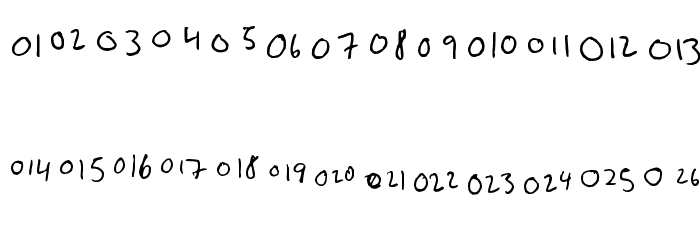 01 02 03 04 05 06 07 08 09 010 011 012 013
014 015 016 017 018 019 020 021 022 023 024 025 026